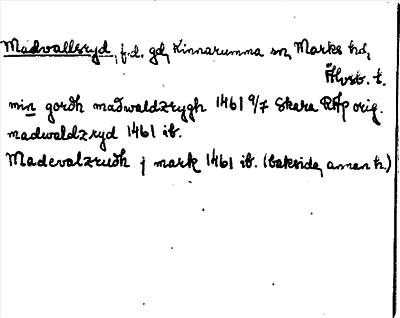 Madvallsryd, f.d. gd, Kinnarumma sn, Marks hd,
Älvsb. l.
min gordh madwaldzrygh 1461 9/7 Skara RAp orig.
madwaldzryd 1461 ib.
Madevalzrudh j mark 1461 ib. (baksida, annan h.)